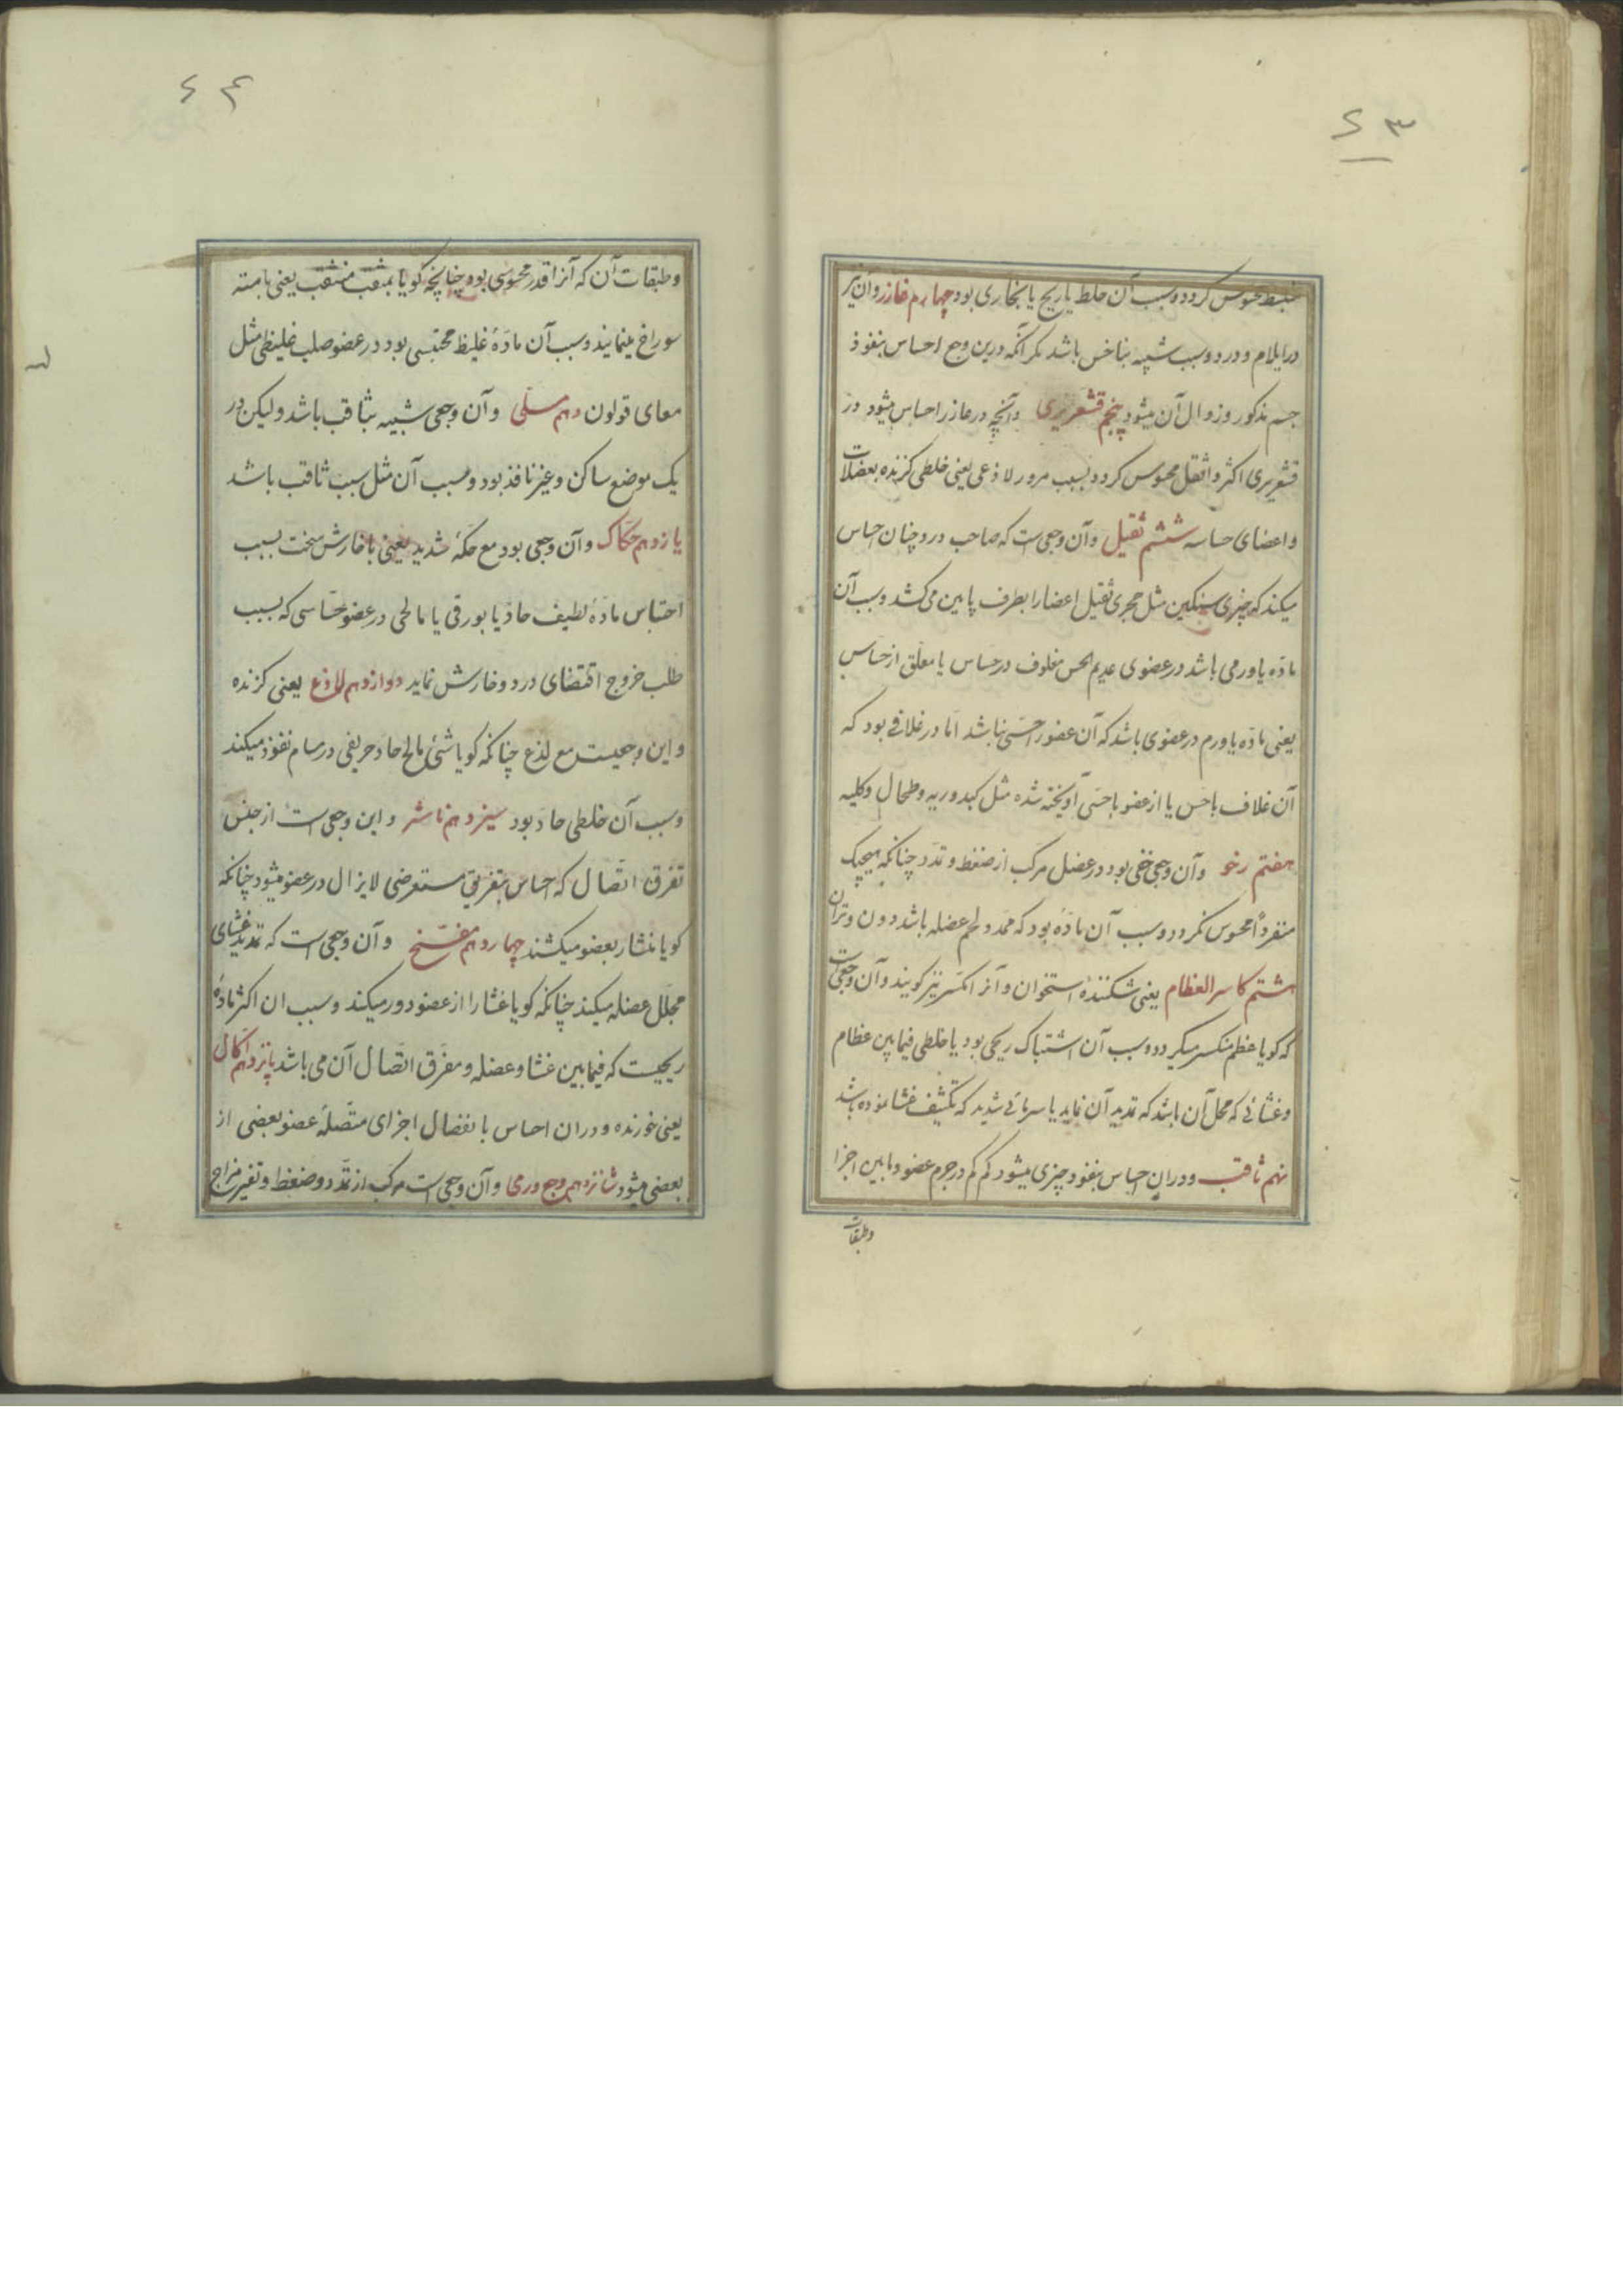 ۲۳
منبسط محسوس کردد و سبب آن خلط یا ریح یا بخاری بود چهارم غارز و آن نیز
در ایلام و درد و سبب شبیه بناخس باشد مکر آنکه درین وجع احساس بنفوذ
جسم مذکور و زوال آن میشود پنجم قشعریری و آنچه در غارز احساس میشود در
قشعریری اکثر و اثقل محسوس کردد بسبب مرور لاذعی یعنی خلطی کزنده بعضلات
و اعضای حساسه ششم ثقیل و آن وجعی است که صاحب درد چنان احساس
میکند که چیزی سنکین مثل حجری ثقیل اعضا را بطرف پایین می کشد و سبب آن
ماده یا ورمی باشد در عضوی عدیم الحس مغلوف در حساس یا معلق از حساس
یعنی ماده یا ورم در عضوی باشد که آن عضو را حسی نباشد اما در غلافی بود که
آن غلاف با حس یا از عضو با حسی آویخته شده مثل کبد و ریه و طحال و کلیه
هفتم رخو و آن وجعی خفی بود در عضل مرکب از ضغط و تمدد چنانکه هیچیک
منفرداً محسوس نکردد و سبب آن مادّهٔ بود که ممدد لحم عضله باشد دون وتر آن
هشتم کاسر العظام یعنی شکنندهٔ استخوان و آنرا مکسر نیز کویند و آن وجعیست
که کویا عظم منکسر میکردد و سبب آن اشتباک ریحی بود یا خلطی فیمابین عظام
و غشائی که محل آن باشد که تمدید آن نماید یا سرمائی شدید که تکثیف غشا نموده باشد
نهم ثاقب و در ان احساس بنفوذ چیزی میشود کم کم در جرم عضو و مابین اجزا
و طبقات
۲۴
و طبقات آن که آنرا قدر محسوسی بود چنانچه کویا بمثقب منثقب یعنی بامته
سوراخ مینمایند و سبب آن مادّهٔ غلیظ محتبسی بود در عضو صلب غلیظی مثل
معای قولون دهم مسلّی و آن وجعی شبیه بثاقب باشد ولیکن در
یک موضع ساکن و غیر نافذ بود و سبب آن مثل سبب ثاقب باشد
یازدهم حکّاک و آن وجعی بود مع حکهٔ شدید یعنی با خارش سخت بسبب
احتباس مادّهٔ لطیف حاد یا بورقی یا مالحی در عضو حسّاسی که بسبب
طلب خروج اقتضای درد و خارش نماید دوازدهم لاذع یعنی کزنده
و این وجعیست مع لذع چنانکه کویا شئ مالح حاد حریفی در مسام نفوذ میکند
و سبب آن خلطی حادّ بود سیزدهم ناشر و این وجعی است از جنس
تفرق اتّصال که احساس بتفریق مستعرضی لایزال در عضو میشود چنانکه
کویا منشار بعضو میکشند چهاردهم مفسّخ و آن وجعی است که تمدید غشای
مجلّل عضله میکند چنانکه کویا غشا را از عضو دور میکند و سبب ان اکثر مادهٔ
ریحیست که فیمابین غشا و عضله و مفرّق اتّصال آن می باشد پانزدهم اکّال
یعنی خورنده و دران احساس بانفصال اجزای متّصلهٔ عضو بعضی از
بعضی میشود شانزدهم وجع ورمی و آن وجعی است مرکب از تمدّد و ضغط و تغیر مزاج